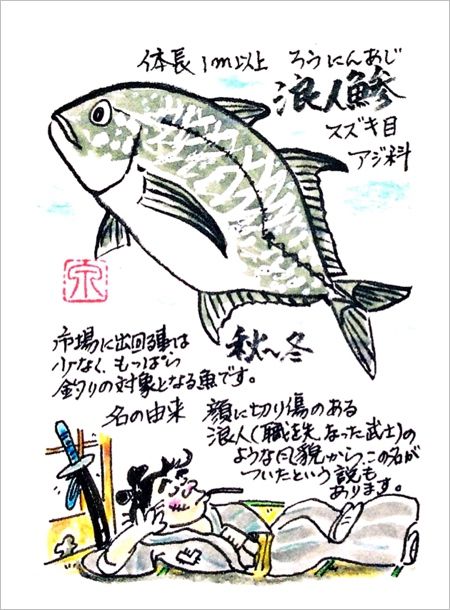 体長1m以上 ろうにんあじ
浪人鯵
スズキ目
アジ科
市場に出回る事は
少なく、もっぱら
釣りの対象となる魚です。
秋～冬
名の由来 顔に切り傷のある
浪人(職を失なった武士)の
ような風貌から、この名が
ついたという説も
あります。